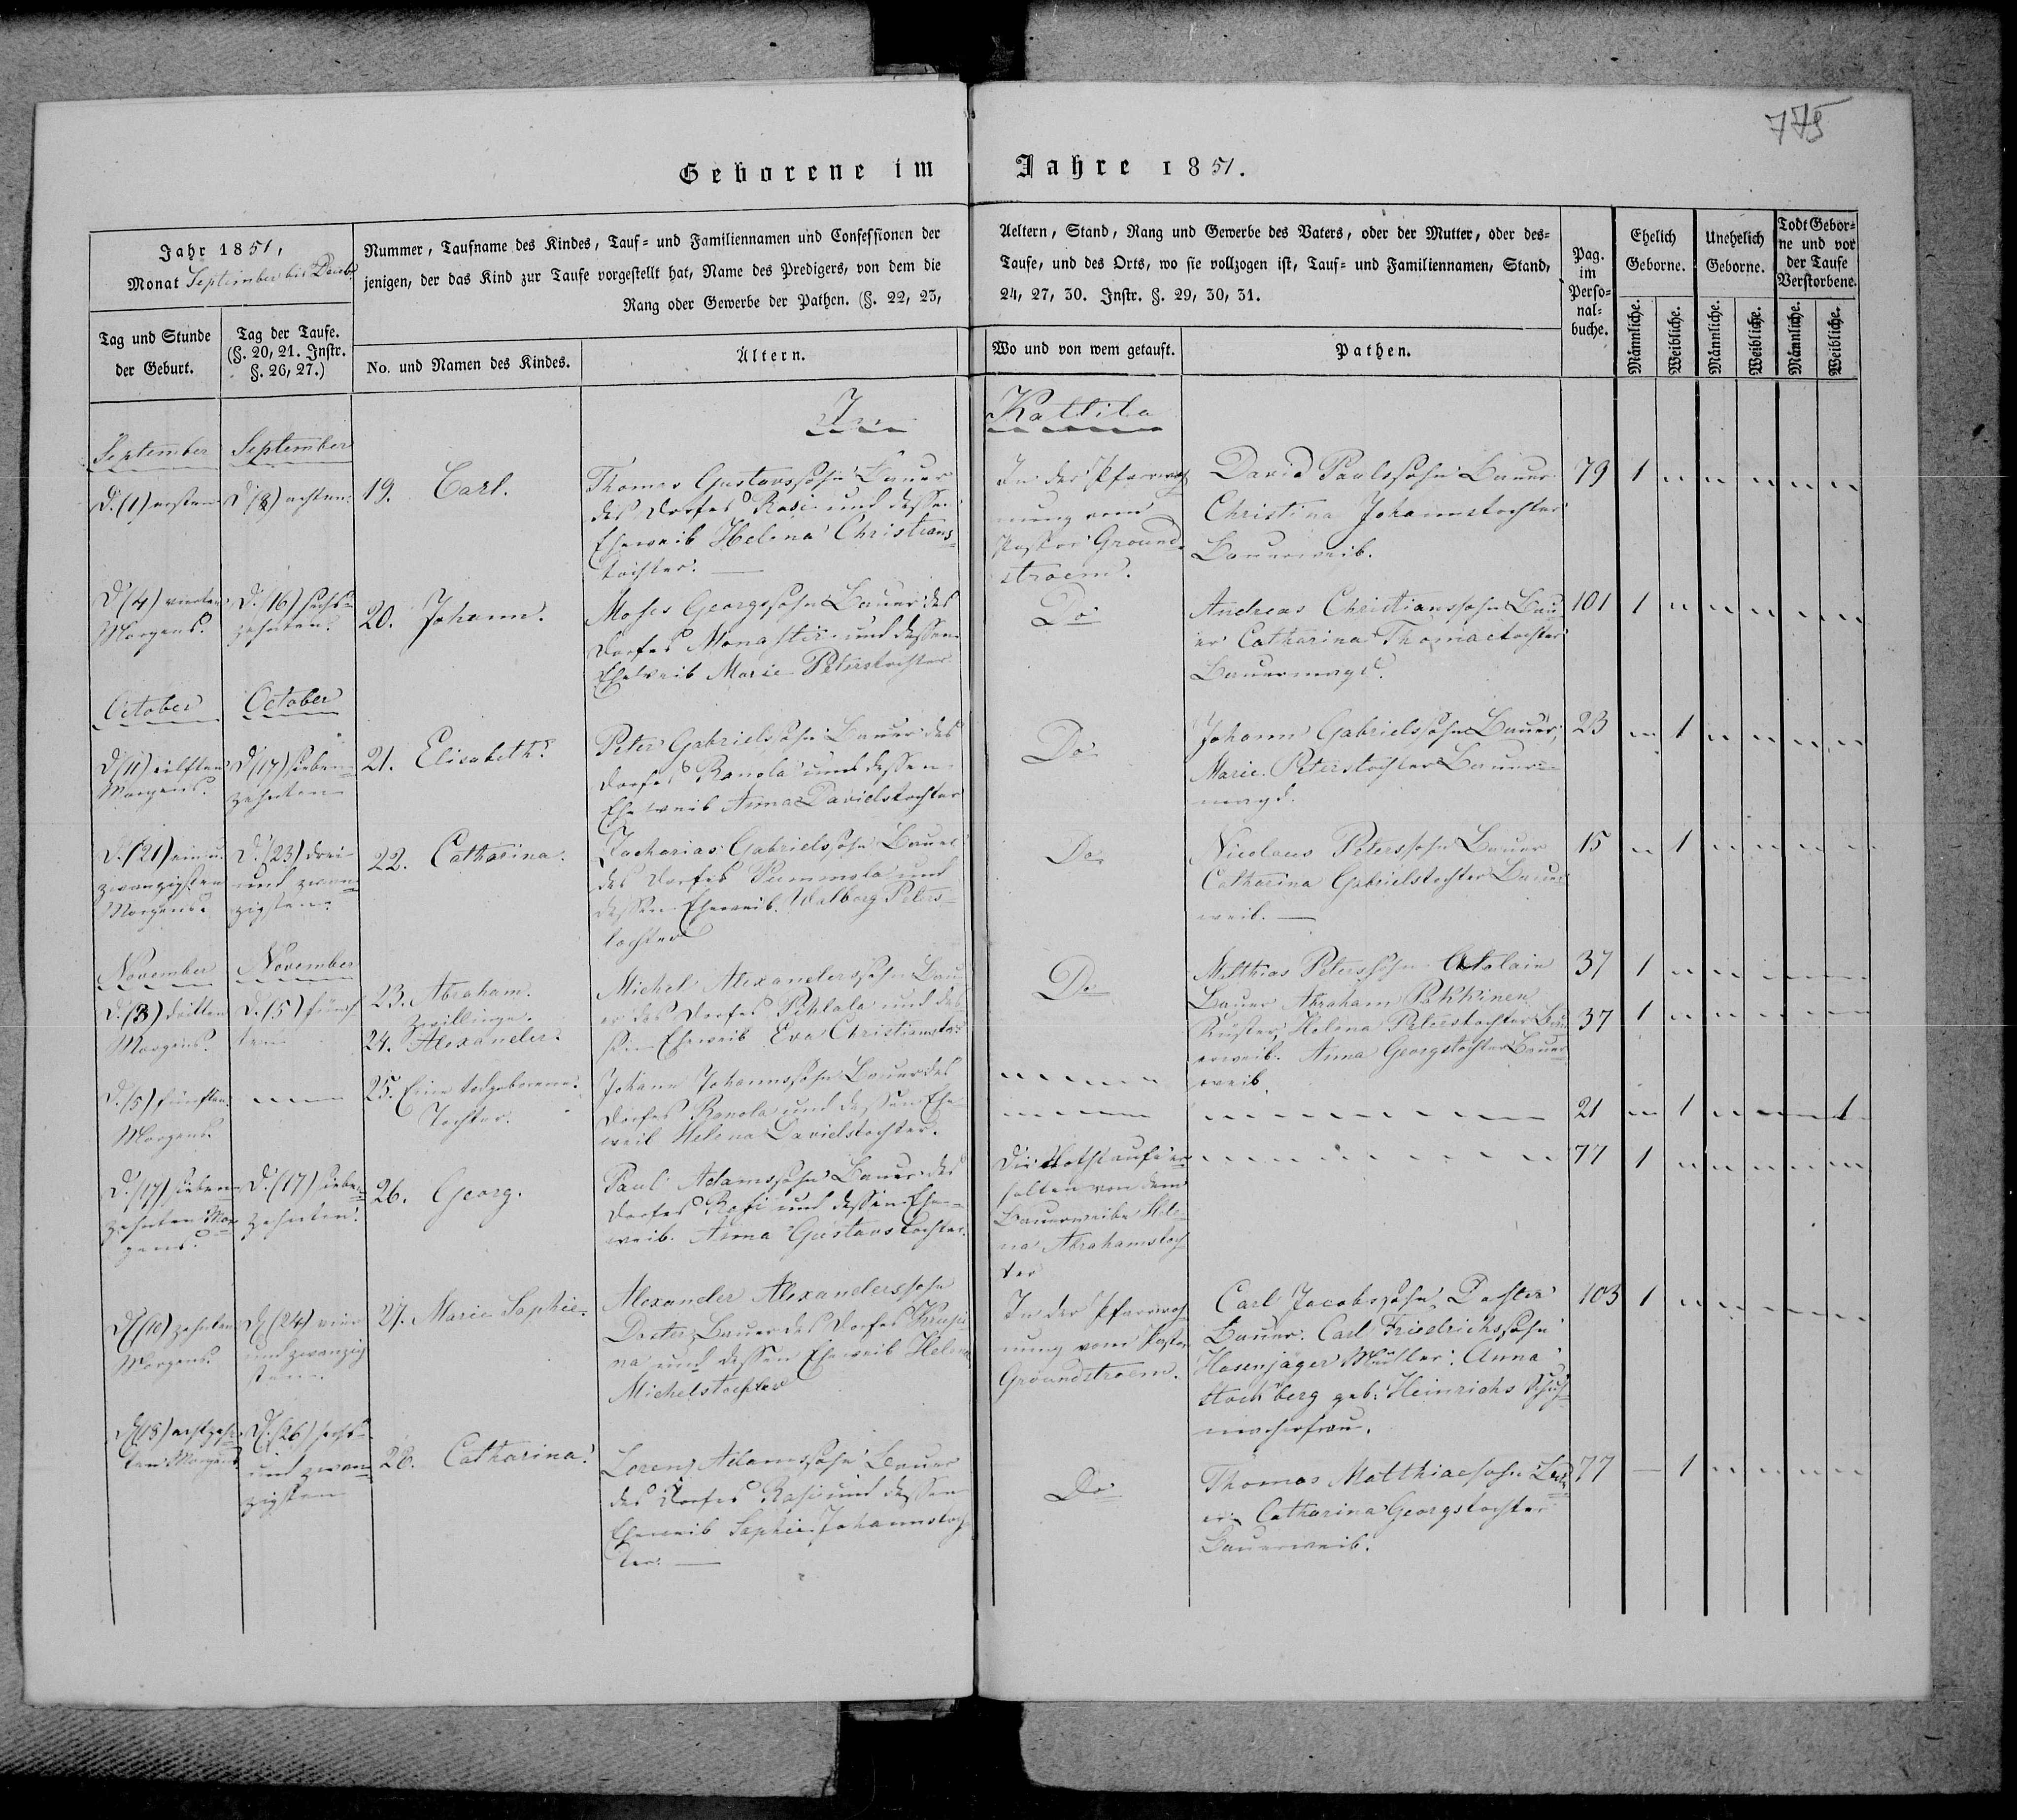 775
Geborene im Jahre 1851.
Jahr 1851,
Monat September bis Decbr
Nummer, Taufname des Kindes, Tauf- und Familiennamen und Confessionen der
jenigen, der das Kind zur Taufe vorgestellt hat, Name des Predigers, von dem die
Rang oder Gewerbe der Pathen. (§. 22, 23,
Aeltern, Stand, Rang und Gewerbe des Vaters, oder der Mutter, oder des-
Taufe, und des Orts, wo sie vollzogen ist, Tauf- und Familiennamen, Stand,
24, 27, 30. Instr. §. 29, 30, 31.
Pag.
im
Perso-
nal-
buche.
Ehelich
Geborne.
Unehelich
Geborne.
Todt Gebor-
ne und vor
der Taufe
Verstorbene.
Männliche.
Weibliche.
Männliche.
Weibliche.
Männliche.
Weibliche.
Tag und Stunde
der Geburt.
Tag der Taufe.
(§. 20, 21. Instr.
§. 26, 27.)
No. und Namen des Kindes.
Ältern.
Wo und von wem getauft.
Pathen.
In Kattila
September
September
D. (1) ersten
D. (8) achten
19. Carl.
Thomas Gustavssohn Bauer
des Dorfes Rasi und dessen
Eheweib Helena Christians-
tochter.
In der Pfarrwoh
nung vom
Pastor Ground-
stroem.
David Paulssohn Bauer
Christina Johannstochter
Bauerweib.
79 1
D. (4) vierten
Morgens.
D. (16) sechs-
zehnten
20. Johann.
Moses Georgssohn Bauer des
Dorfes Monastir und dessen
Eheweib Marie Peterstochter
Do
Andreas Christianssohn Bau
er Catharina Thomaetochter
Bauermagd.
101 1
October
October
D. (11) eilften
Morgens.
D. (17) sieben-
zehnten
21. Elisabeth.
Peter Gabrielssohn Bauer des
Dorfes Ranola und dessen
Eheweib Anna Davidstochter
Do
Johann Gabrielssohn Bauer,
Marie Peterstochter Bauer-
magd.
23 1
D. (21) ein u.
zwanzigsten
Morgens.
D. (23) drei-
und zwan-
zigsten
22. Catharina.
Zacharias Gabrielssohn Bauer
des Dorfes Pummola und
dessen Eheweib Walborg Peters-
tochter
Do
Nicolaus Peterssohn Bauer
Catharina Gabrielstochter Bauer
weib.
15 1
November
November
D. (3) dritten
Morgens.
D. (5) fünf
ten
23. Abraham.
Zwillinge.
24. Alexander.
Michel Alexanderssohn Bau
er des Dorfes Pihlala und des
sen Eheweib Eva Christianstochter
Do
Matthias Peterssohn
Bauer Abraham Pukkinen
Küster, Helena Peterstochter Bau
erweib. Anna Georgstochter Bauer
weib.
37 1
37 1
D. (5) fünften
Morgens.
25. Eine todgeborene
Tochter.
Johann Johannssohn Bauer des
Dorfes Ranola und dessen Ehe
weib Helena Davidstochter.
21 1 1
D. (17) sieben
zehnten Mor
gens.
D. (17) sieben
zehnten
26. Georg.
Paul Adamssohn Bauer des
Dorfes Rasi und dessen Ehe-
weib Anna Gustavstochter.
Die Nothtaufe er
halten von dem
Bauerweibe Hele-
na Abrahamstoch
ter
77 1
D. (10) zehnten
Morgens.
D. (24) vier
und zwanzig
sten
27. Marie Sophie.
Alexander Alexanderssohn
Dester Bauer des Dorfes
und dessen Eheweib Helena
Michelstochter
In der Pfarrwoh
nung vom Pastor
Groundstroem.
Carl Jacobssohn Dester
Bauer. Carl Friedrichssohn
Hasenjäger Müller. Anna
Stockberg geb. Heinrichs Schuh-
macherfrau.
103 1
D. (18) achtzehn
ten Morgens
D. (26) sechs
und zwan-
zigsten
28. Catharina.
Lorenz Adamssohn Bauer
des Dorfes Rasi und dessen
Eheweib Sophie Johannstoch
ter.
Do
Thomas Matthiaesohn Bau
er. Catharina Georgstochter
Bauerweib.
77 1